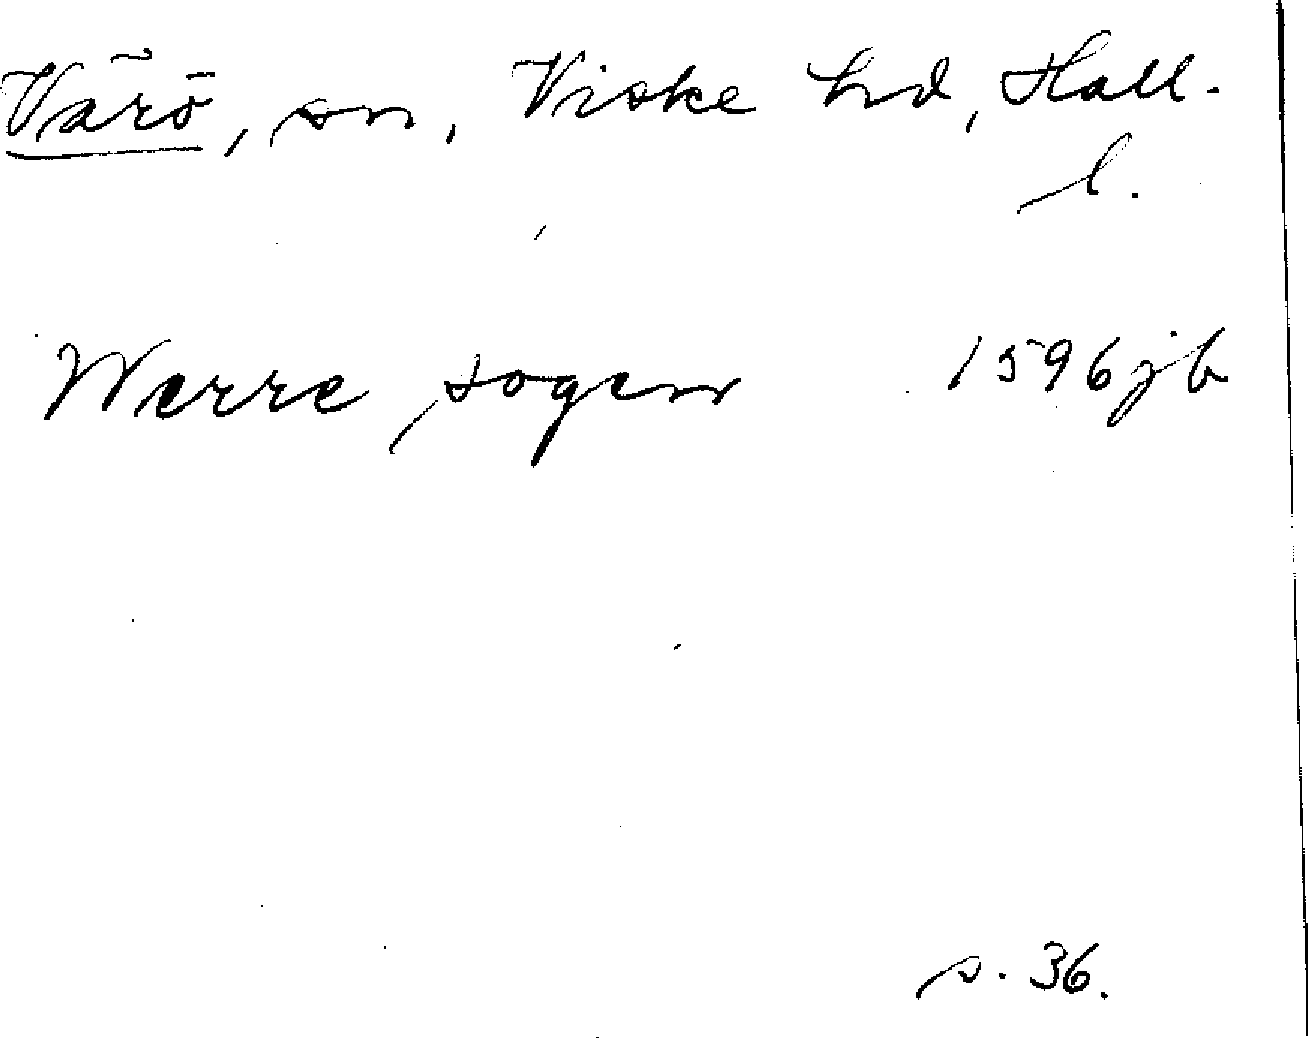 Värö, sn, Viske hd, Hall.
l.
Werre sogen 1596 jb
s. 36.